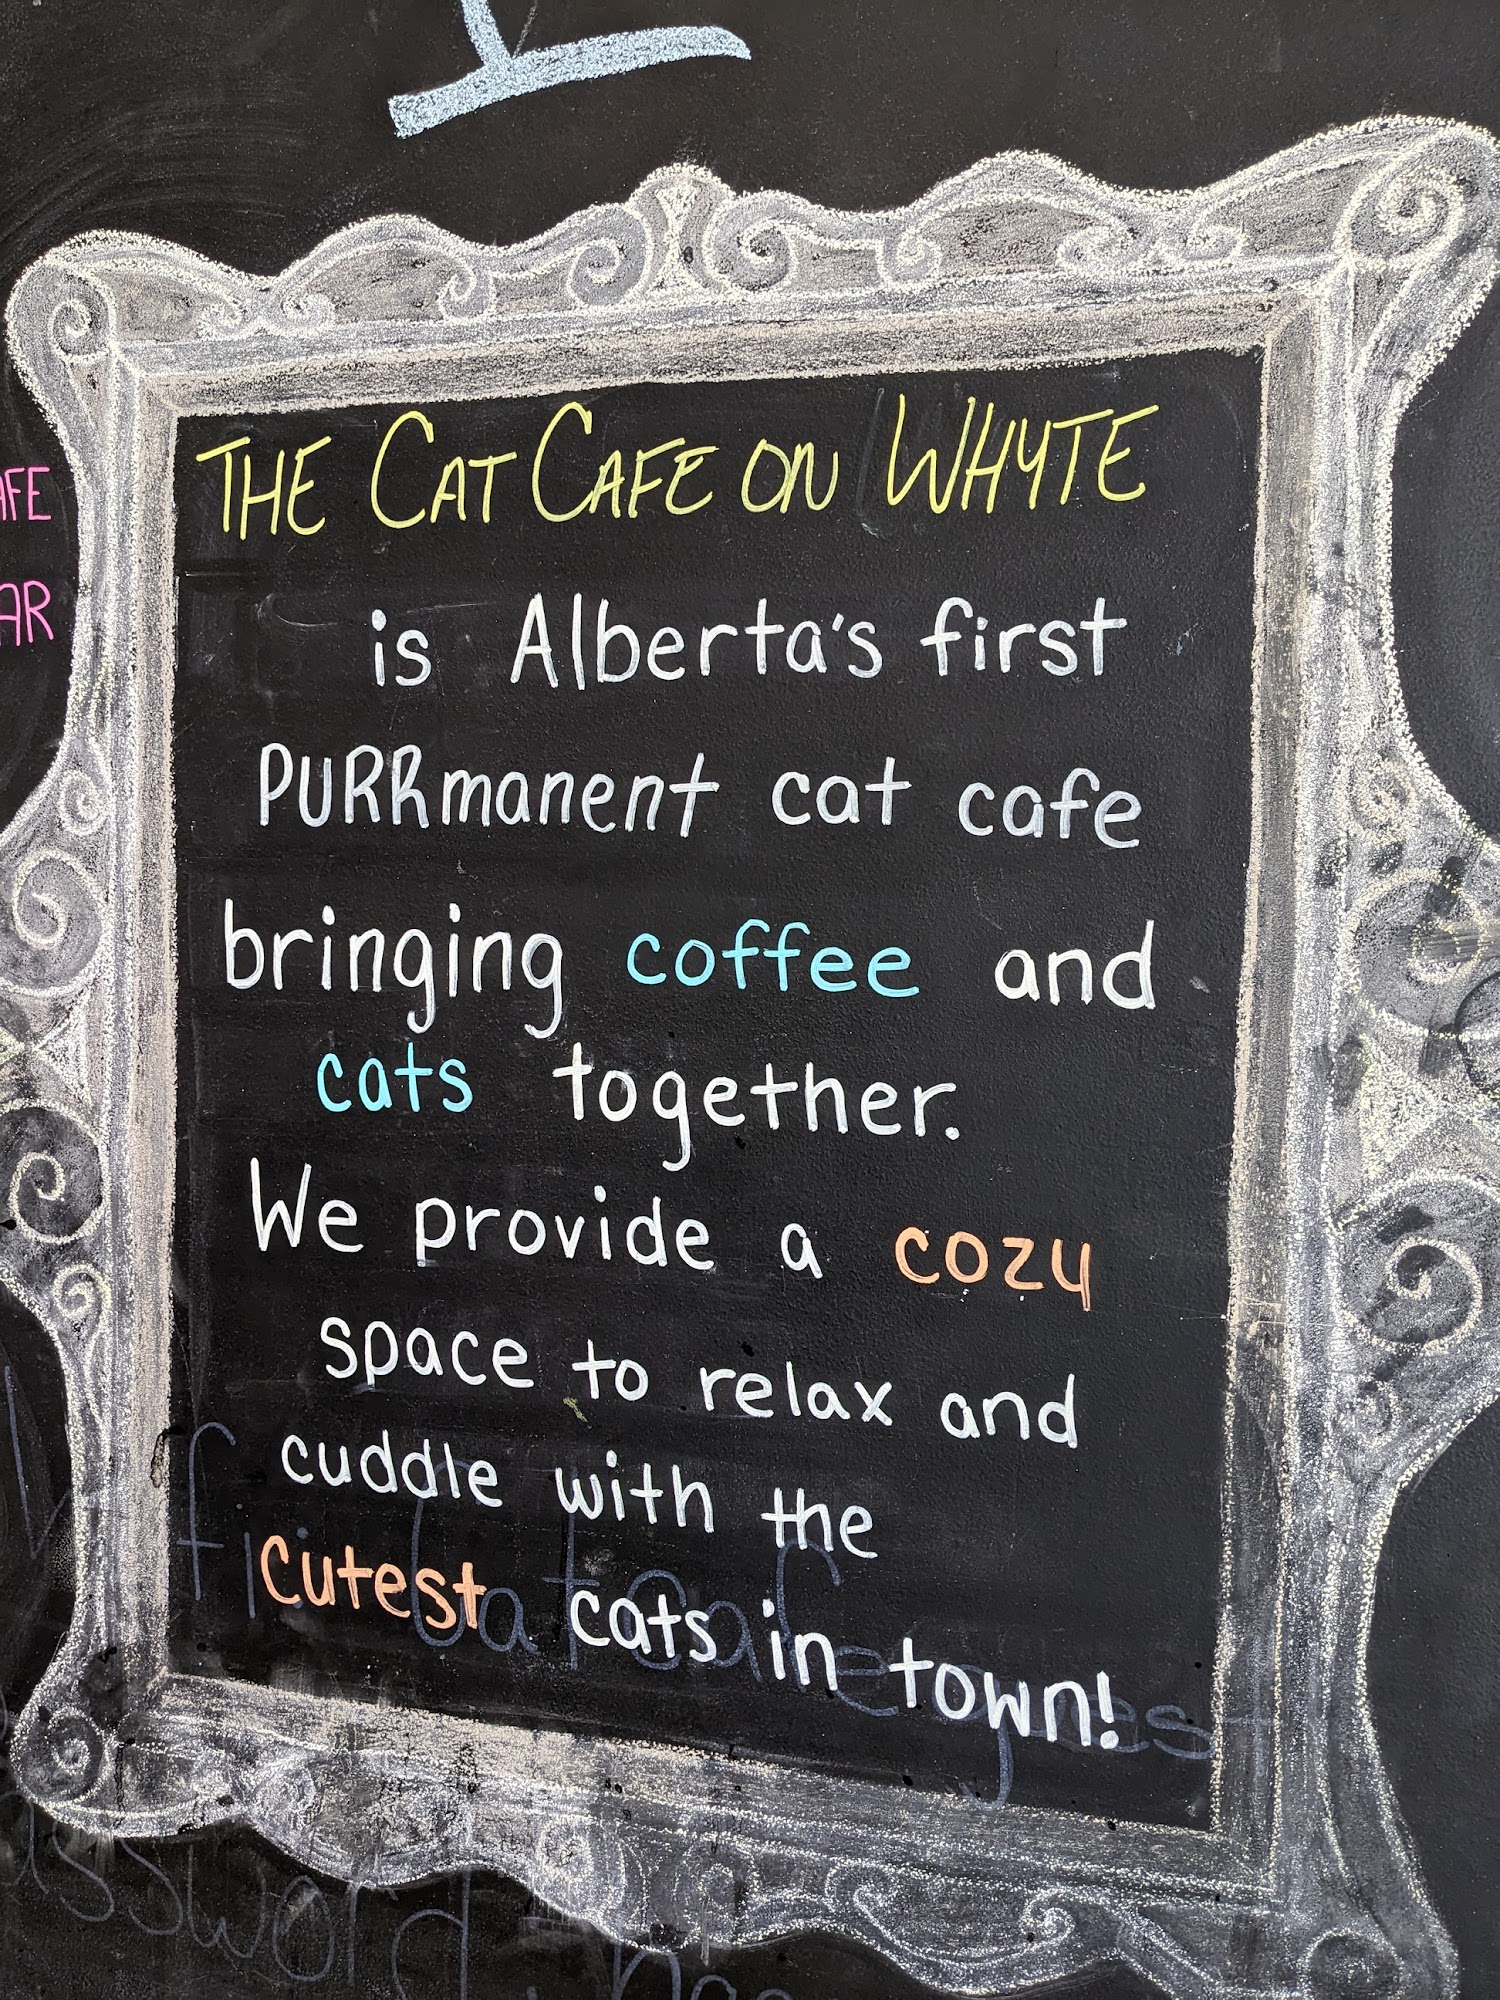 AFE
AR
THE CAT CAFE ON WHYTE
is Alberta's first
PURRmanent cat cafe
bringing coffee and
cats together.
We provide a cozy
space to relax and
cuddle with the
cutest cats in town!